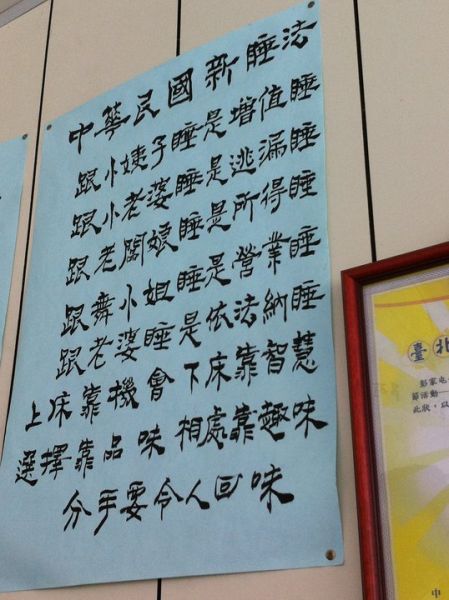 中華民國新睡法
跟小姨子睡是增值睡
跟小老婆睡是逃漏睡
跟老闆娘睡是所得睡
跟舞小姐睡是營業睡
跟老婆睡是依法納睡
上床靠機會 下床靠智慧
選擇靠品味 相處靠趣味
分手要令人回味
臺北
節活動
此狀，以
中